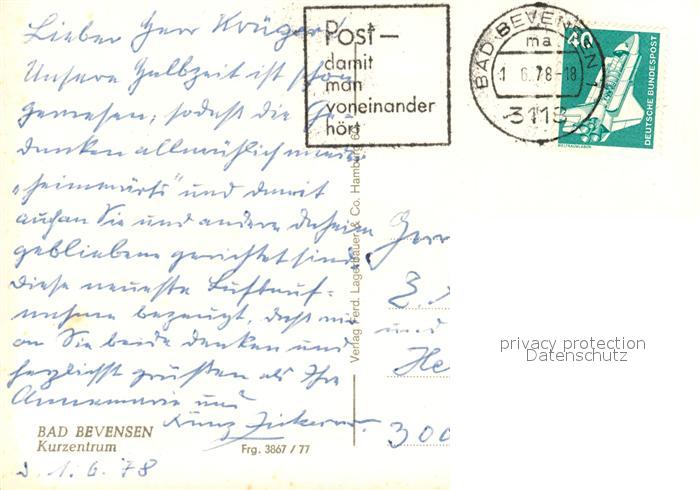 Lieber Herr Krüger!
Unsere Halbzeit ist schon
gewesen, sodaß die Ge-
danken allmählich wieder
"heimwärts" und damit
auch an Sie und andere daheim
gebliebene gerichtet sind.
Diese neueste Luftauf-
nahme bezeugt, daß wir
an Sie beide denken und
herzlichst grüßen als Ihre
Annemarie und
BAD BEVENSEN
Kurzentrum
Frg. 3867 / 77
d. 1. 6. 78
Verlag Ferd. Lagerbauer & Co. Hamburg
Post –
damit
man
voneinander
hört
BAD BEVENSEN 1
ma
1. 6.78-18
3118
40
DEUTSCHE BUNDESPOST
WELTRAUMLABOR
Herr
und
He
300
privacy protection
Datenschutz